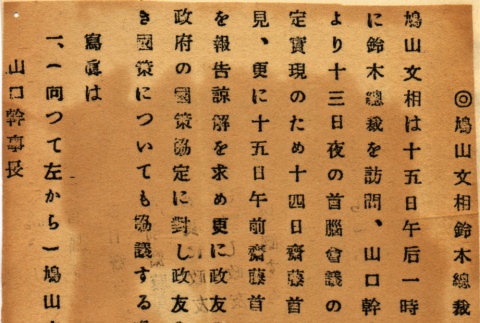 ◎鳩山文相鈴木總裁
鳩山文相は十五日午后一時
に鈴木總裁を訪問、山口幹
より十三日夜の首腦會議の
定實現のため十四日齋藤首
見、更に十五日午前齋藤首
を報告諒解を求め更に政友
政府の國策協定に對し政友
き國策についても協議する
寫眞は
一、(向つて左から)鳩山
山口幹事長